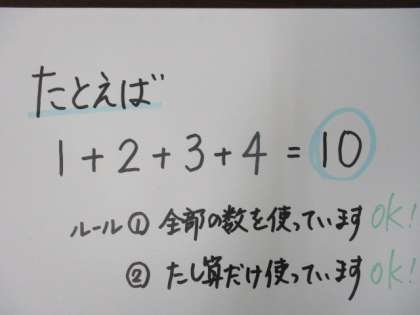 たとえば
1+2+3+4=10
ルール① 全部の数を使っています OK!
② たし算だけ使っています OK!